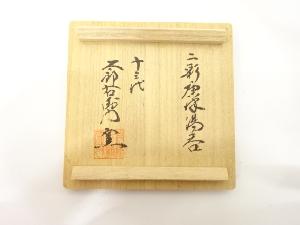 二彩唐津湯呑
十三代
太郎右衛門窯